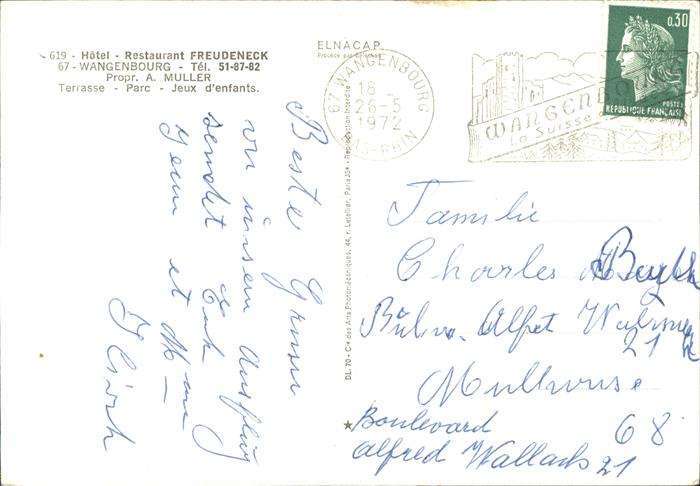 619 - Hôtel - Restaurant FREUDENECK
67 - WANGENBOURG - Tél. 51-87-82
Propr. A. MULLER
Terrasse - Parc - Jeux d'enfants.
ELNACAP
Reproduction interdite
DL. 70 - Cie des Arts Photomécaniques, 44, r. Letellier, Paris
67 WANGENBOURG
18
26-5
1972
BAS-RHIN
WANGENBO
La Suisse
0,30
POSTES
REPUBLIQUE FRANÇAISE
Beste Grüsse
von unsern Ausflug
sendet Euch
Jean et
Familie
Charles
Alfet 21
Mulhouse
68
Boulevard
Alfred Wallach 21